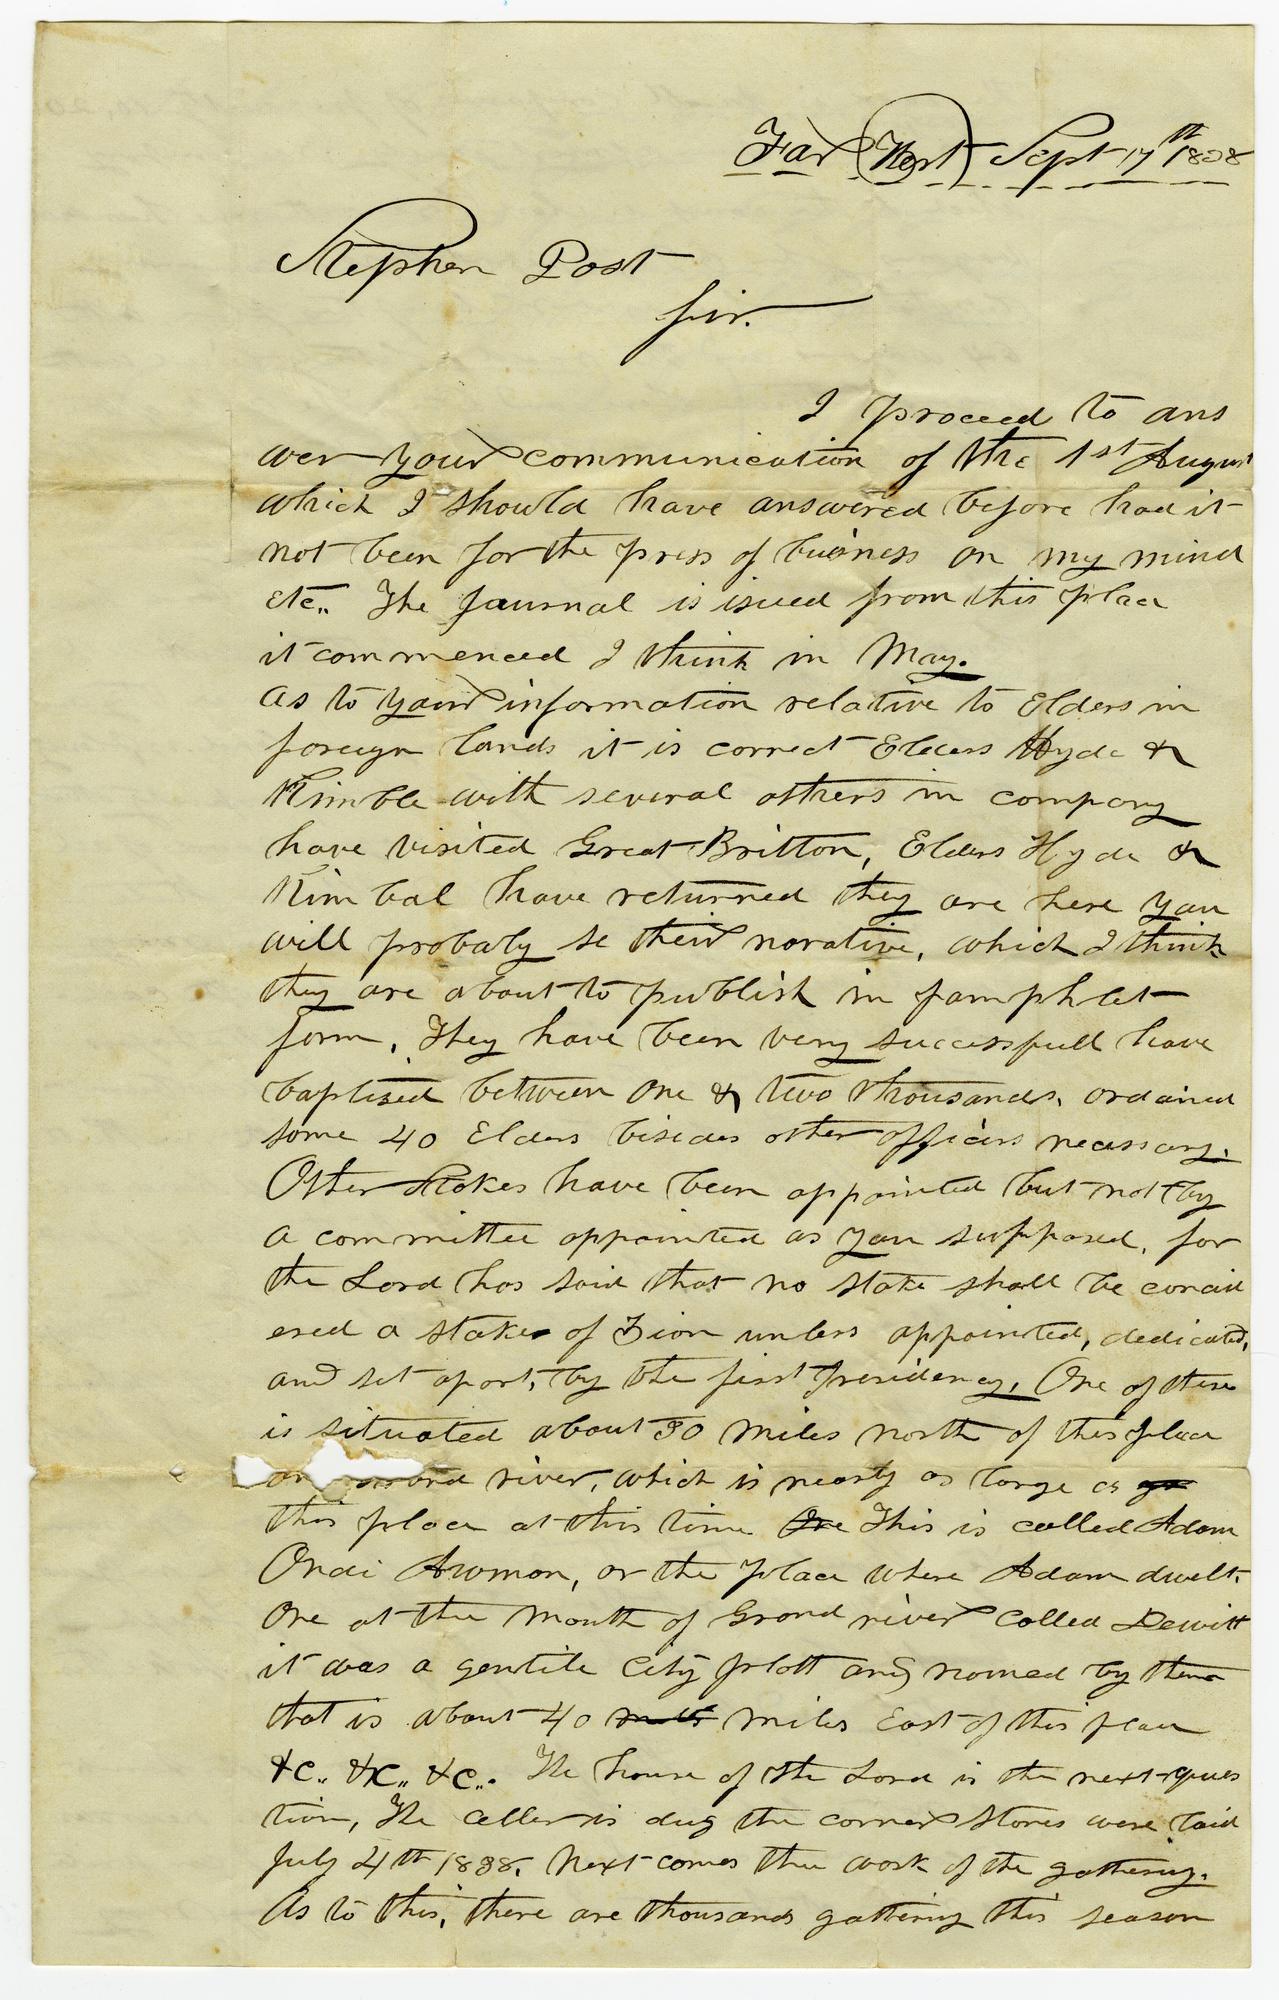 Far West Sept 17th 1838
Stephen Post
Sir.
I proceed to ans
wer your communication of the 1st August
which I should have answered before had it
not been for the press of buisness on my mind
etc.. The Journal is issued from this place
it commenced I think in May.
As to your information relative to Elders in
foreign lands it is correct Elders Hyde &
Kimble with several others in company
have visited Great Britton, Elders Hyde &
Kimbal have returned they are here you
will probaly se their narative, which I think
they are about to publish in pamphlet
form, They have been very successfull have
baptized between one & two thousands, ordained
some 40 Elders bisides other officers necessary.
Other Stakes have been appointed but not by
a committee appointed as you supposed, for
the Lord has said that no stake shall be concid
ered a stake of Zion unless appointed, dedicated,
and set apart, by the first Presidency. One of these
is situated about 30 miles north of this place
on Grand river, which is nearly as large as
this place at this time One This is called Adam
Ondi Awmon, or the place where Adam dwelt.
One at the mouth of Grond river called Dewitt
it was a gentile City plott and named by them
that is about 40 miles miles East of this place
&c.. &c.. &c.. The house of the Lord is the next ques
tion, The celler is dug the corner stones were laid
July 4th 1838. Next comes the work of the gathering.
As to this, there are thousands gathering this season